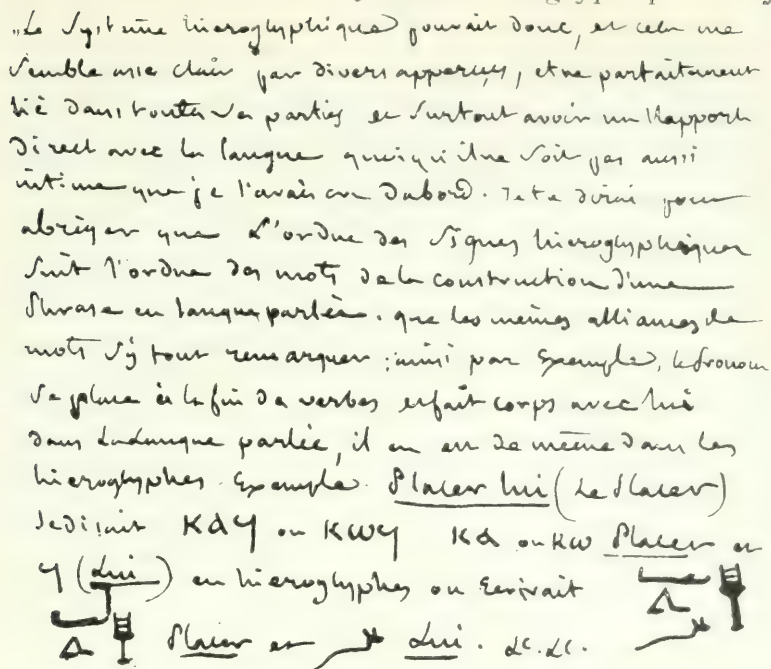 „Le Systême hieroglyphique pouvait donc, et cela me
Semble assé clair par divers apperçus, être parfaitement
lié dans toutes ses parties et Surtout avoir un Rapport
Direct avec la langue quoiqu'il ne Soit pas aussi
intime que je l'avais cru Dabord. Je te dirai pour
abréger que L'ordre des Signes hieroglyphiques
Suit l'ordre des mots de la construction d'une
Phrase en langue parlée. que les mêmes alliances de
mots S'y font remarquer; ainsi par Exemple, le Pronom
se place à la fin de verbes et fait corps avec lui
dans La Langue parlée, il en est de même dans les
hieroglyphes. Exemple. Placer lui (Le Placer)
Se disait ⲕⲁϥ ou ⲕⲱϥ ⲕⲁ ou ⲕⲱ Placer et
ϥ (Lui) en hieroglyphes on Ecrivait
Placer et Lui. &c. &c.